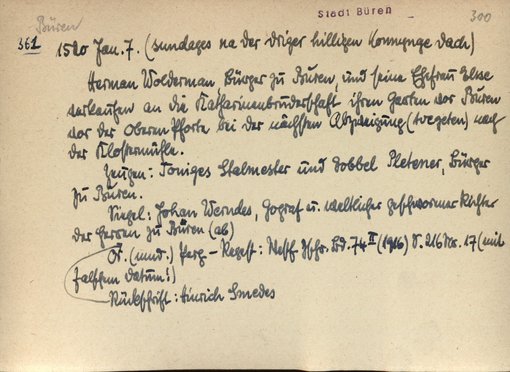 Büren
Stadt Büren
300
361 1520 Jan. 7. (sundages na der driger hilligen Konnynge dach)
Herman Wolderman, Bürger zu Büren, und seine Ehefrau Else
verkaufen an die Katharinenbruderschaft ihren Garten vor Büren
vor der Oberen Pforte bei der nächsten Abzweigung (twegeten) nach
der Klostermühle.
Zeugen: Toniges Stalmester und Gobbel Pletener, Bürger
zu Büren.
Siegel: Johan Werndes, Gograf u. weltlicher geschworner Richter
der Herren zu Büren (ab)
Or. (mnd.) Perg. - Regest: Westf. Ztschr. Bd. 74 II (1916) S. 216 Nr. 17 (mit
falschem Datum!)
Rückschrift: Hinrich Smedes